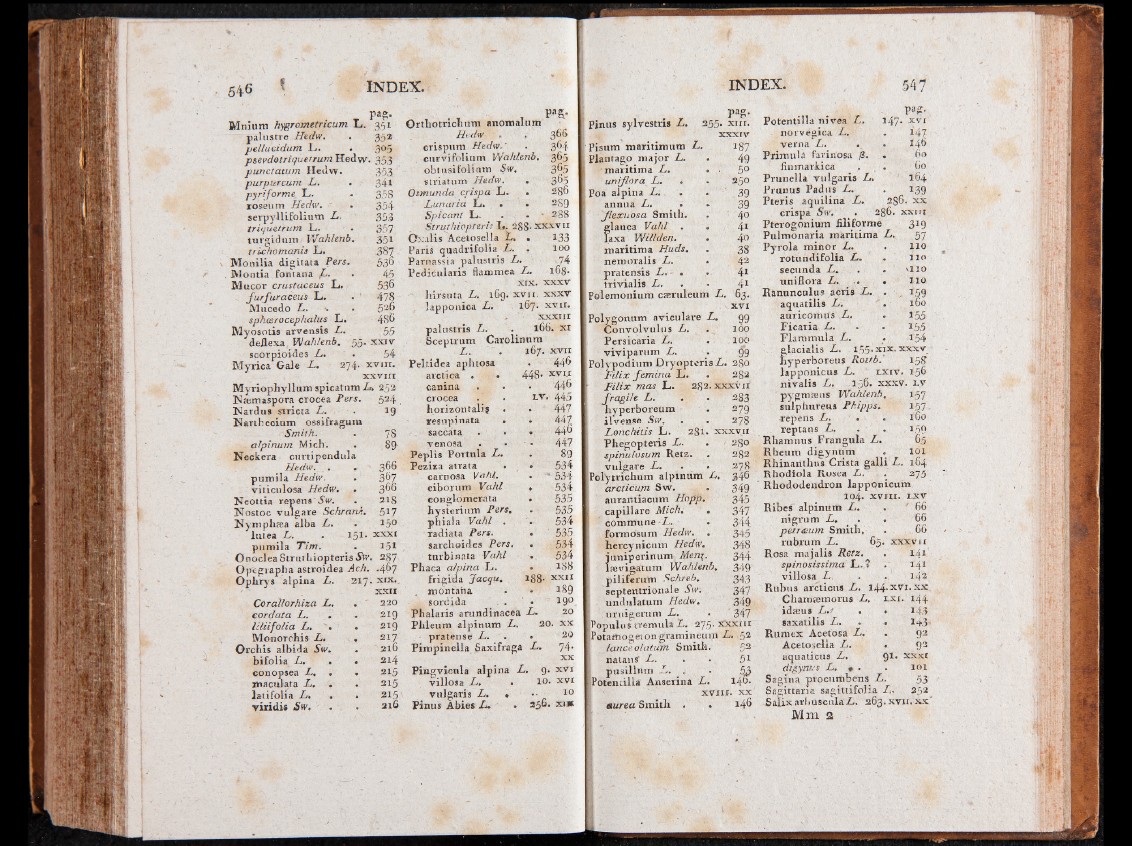 546 INDEX.
pag.
Mnium hygrometricum L. 351
palustre Hedw. . 352
pellucidum L. . 305
pseudotriquetrum Hedw. 353
punctatum Hedw. . 353
purpureum L. . 341
pyriforme L. . 358
roseum Hedw. . 354
serpyllifolium L. 353
triquetrum L. . 357
turgidum Wahlenb. 351
trichomanis L. . 387
Monilia digitata Pers. 536
Montia fontana L. . 45
Mucor crustaceus L. 536
furfuraceus L. . 478
Mucedo L. . . 526
sphærocephalus L. 486
Myosotis arvensis L. 55
deflexa Wahlenb. 55. XXIV
scorpioides L. . 54
Myrica Gale L. 274. XVIII.
XXVIII
Myriophyllum spicatum L. 252
Næmaspora crocea Pers. 524
Nardus stricta L. . 19
Narthecium ossifragum
Smith. . 78
alpinum Mich. . 89
Neckera curtipendula
Hedw. . . 366
pumila Hedw. . 367
viticulosa Hedw. . 366
Neottia repens Sw. . 218
Nostoc vulgare Schrank. 517
Nymphæa alba L. . 150
lutea L. . 151. XXXI
pumila Tim. . 151
Onoclea Struthiopteris Sw. 287
Opegrapha astroidea Ach. 467
Ophrys alpina L. 217. XIX.
XXII
Corallorhiza L. . 220
cordata L. . . 219
liliifolia L. . . 219
Monorchis L. . 217
Orchis albida Sw. . 216
bifolia L. . . 214
conopsea L. . . 215
maculata L. . . 215
latifolia L. . . 215
viridis Sw. . . 216
pag.
Orthotrichum anomalum
Hedw . . 366
crispum Hedw. . 364
curvifolium Wahlenb. 365
obtusifolium Sw. 365
striatum Hedw. . 365
Osmunda crispa L. . 286
Lunaria L. . . 289
Spicant L. . . 288
Struthiopteris L. 288. XXXVII
Oxalis Acetosella L. . 133
Paris quadrifolia L. . 100
Parnassia palustris L. 74
Pedicularis flammea L. 168.
XIX. XXXV
hirsuta L. 169. XVII. XXXV
lapponica L. 167. XVII.
XXXIII
palustris L. . 166. XI
Sceptrum Carolinum
L. . 167. XVII
Peltidea aphtosa . 446
arctica . . 448. XVII
canina . . . 446
crocea . . LV. 445
horizontalis . . 447
resupinata . . 447
saccata . . . 446
venosa . . . 447
Peplis Portula L. . 89
Peziza atrata . . 534
carnosa Vahl. . 534
ciborum Vahl . 534
conglomerata . 535
hysterium Pers. . 535
phiala Vahl . . 534
radiata Pers. . 535
sarchoides Pers. . 534
turbinata Vahl . 534
Phaca alpina L. . 188
frigida Jacqu. 188. XXII
montana . . 189
sordida . . 190
Phalaris arundinacea L. 20
Phleum alpinum L. 20. XX
pratense L. . . 20
Pimpinella Saxifraga L. 74.
XX
Pingvicula alpina L. 9. XVI
villosa L. . 10. XVI
vulgaris L. . . 10
Pinus Abies L. . 256. XIII
INDEX. 547
pag.
Pinus sylvestris L. 255. XIII.
XXXIV
Pisum maritimum L. 187
Plantago major L. . 49
maritima L. . . 50
uniflora L. . . 250
Poa alpina L. . . 39
annua L. . . 39
flexuosa Smith. . 40
glauca Vahl . 41
laxa Willden. . 40
maritima Huds. . 38
nemoralis L. . 42
pratensis L. . . 41
trivialis L. . . 41
Polemonium cæruleum L. 63.
XVI
Polygonum aviculare L. 99
Convolvulus L. . 100
Persicaria L. . 100
viviparum L. . 99
Polypodium Dryopteris L. 280
Filix femina L. . 282
Filix mas L. 282. XXXVII
fragile L. . . 283
hyperboreum . 279
ilvense Sw. . . 278
Lonchitis L. 281. XXXVII
Phegopteris L. . 280
spinulosum Retz. . 282
vulgare L. . . 278
Polytrichum alpinum L. 346
arcticum Sw. . 349
aurantiacum Hopp. 345
capillare Mich. . 347
commune L. . 344
formosum Hedw. . 345
hercynicum Hedw. 348
juniperinum Menz. 344
lævigatum Wahlenb. 349
piliferum Schreb. 343
septentrionale Sw. 347
undulatum Hedw. 349
urnigerum L. . 347
Populus tremula L. 275. XXXIII
Potamogeton gramineum L. 52
lanceolatum Smith. 52
natans L. . . 51
pusillum L. . . 53
Potentilla Anserina L. 146.
XVIII. XX
aurea Smith . . 146
pag.
Potentilla nivea L. 147. XVI
norvegica L. . 147
verna L. . . 146
Primula farinosa β. . 60
finmarkica . . 60
Prunella vulgaris L. 164
Prunus Padus L. . 139
Pteris aquilina L. 286. XX
crispa Sw. . 286. XXIII
Pterogonium filiforme 319
Pulmonaria maritima L. 57
Pyrola minor L. . 110
rotundifolia L. . 110
secunda L. . . 110
uniflora L. . . 110
Ranunculus acris L. . 159
aquatilis L. . 160
auricomus L. . 155
Ficaria L. . . 155
Flammula L. . 154
glacialis L. 155. XIX. XXXV
hyperboreus Rottb. 158
lapponicus L. LXIV. 156
nivalis L. 156. XXXV. LV
pygmæus Wahlenb. 157
sulphureus Phipps. 157
repens L. . . 160
reptans L. . . 159
Rhamnus Frangula L. 65
Rheum digynum . 101
Rhinanthus Crista galli L. 164
Rhodiola Rosea L. . 275
Rhododendron lapponicum
104. XVIII. LXV
Ribes alpinum L. . 66
nigrum L. . . 66
petræum Smith. . 66
rubrum L. 65. XXXVII
Rosa majalis Retz. . 141
spinosissima L. ? . 141
villosa L. . . 142
Rubus arcticus L. 144. XVI. XX
Chamæmorus L. LXI. 144
idæus L. . . 143
saxatilis L. . . 143
Rumex Acetosa L. . 92
Acetosella L. . 92
aquaticus L. 91. XXXI
digynus L. . . 101
Sagina procumbens L. 53
Sagittaria sagittifolia L. 252
Salix arbuscula L. 263. XVII. XX
Mm 2